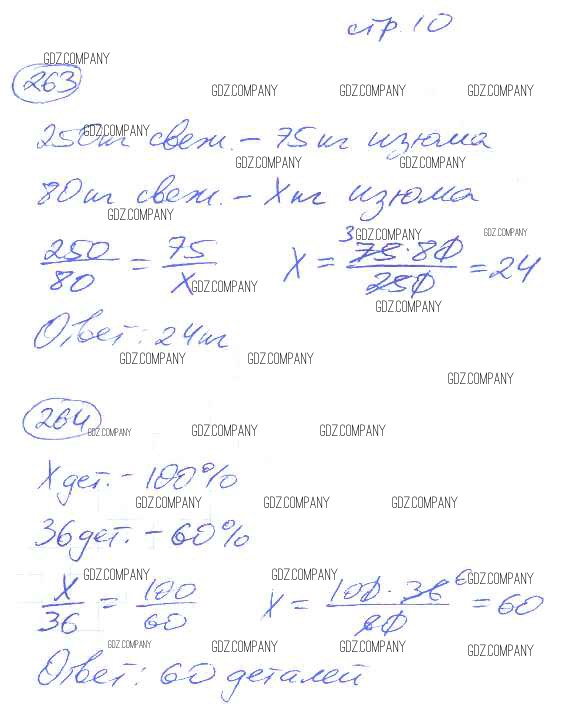 стр. 10
GDZ.COMPANY
263
GDZ.COMPANY GDZ.COMPANY GDZ.COMPANY
GDZ.COMPANY
250кг свеж. – 75 кг изюма
GDZ.COMPANY GDZ.COMPANY
80 кг свеж. – X кг изюма
GDZ.COMPANY
3 GDZ.COMPANY GDZ.COMPANY
250/80 = 75/X X = 75·80/250 = 24
GDZ.COMPANY
GDZ.COMPANY
Ответ: 24 кг
GDZ.COMPANY GDZ.COMPANY
GDZ.COMPANY
264
GDZ.COMPANY GDZ.COMPANY GDZ.COMPANY
X дет. – 100%
GDZ.COMPANY GDZ.COMPANY GDZ.COMPANY
36 дет. – 60%
GDZ.COMPANY GDZ.COMPANY 6 GDZ.COMPANY
X/36 = 100/60 X = 100·36/60 = 60
GDZ.COMPANY GDZ.COMPANY GDZ.COMPANY GDZ.COMPANY
Ответ: 60 деталей